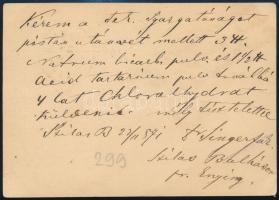 Kérem a tek. Igazgatóságot
postán utánvét mellett 3 tt.
Natrium bicarb. pulv. és 1 1/2 tt
Acid tartaricum pulv. továbbá
4 lat Chloralhydrat
küldeni. mély tisztelettel
Szilas B 22/1 891 Dr Singer
299 Szilas Balhás
pr. Enying.